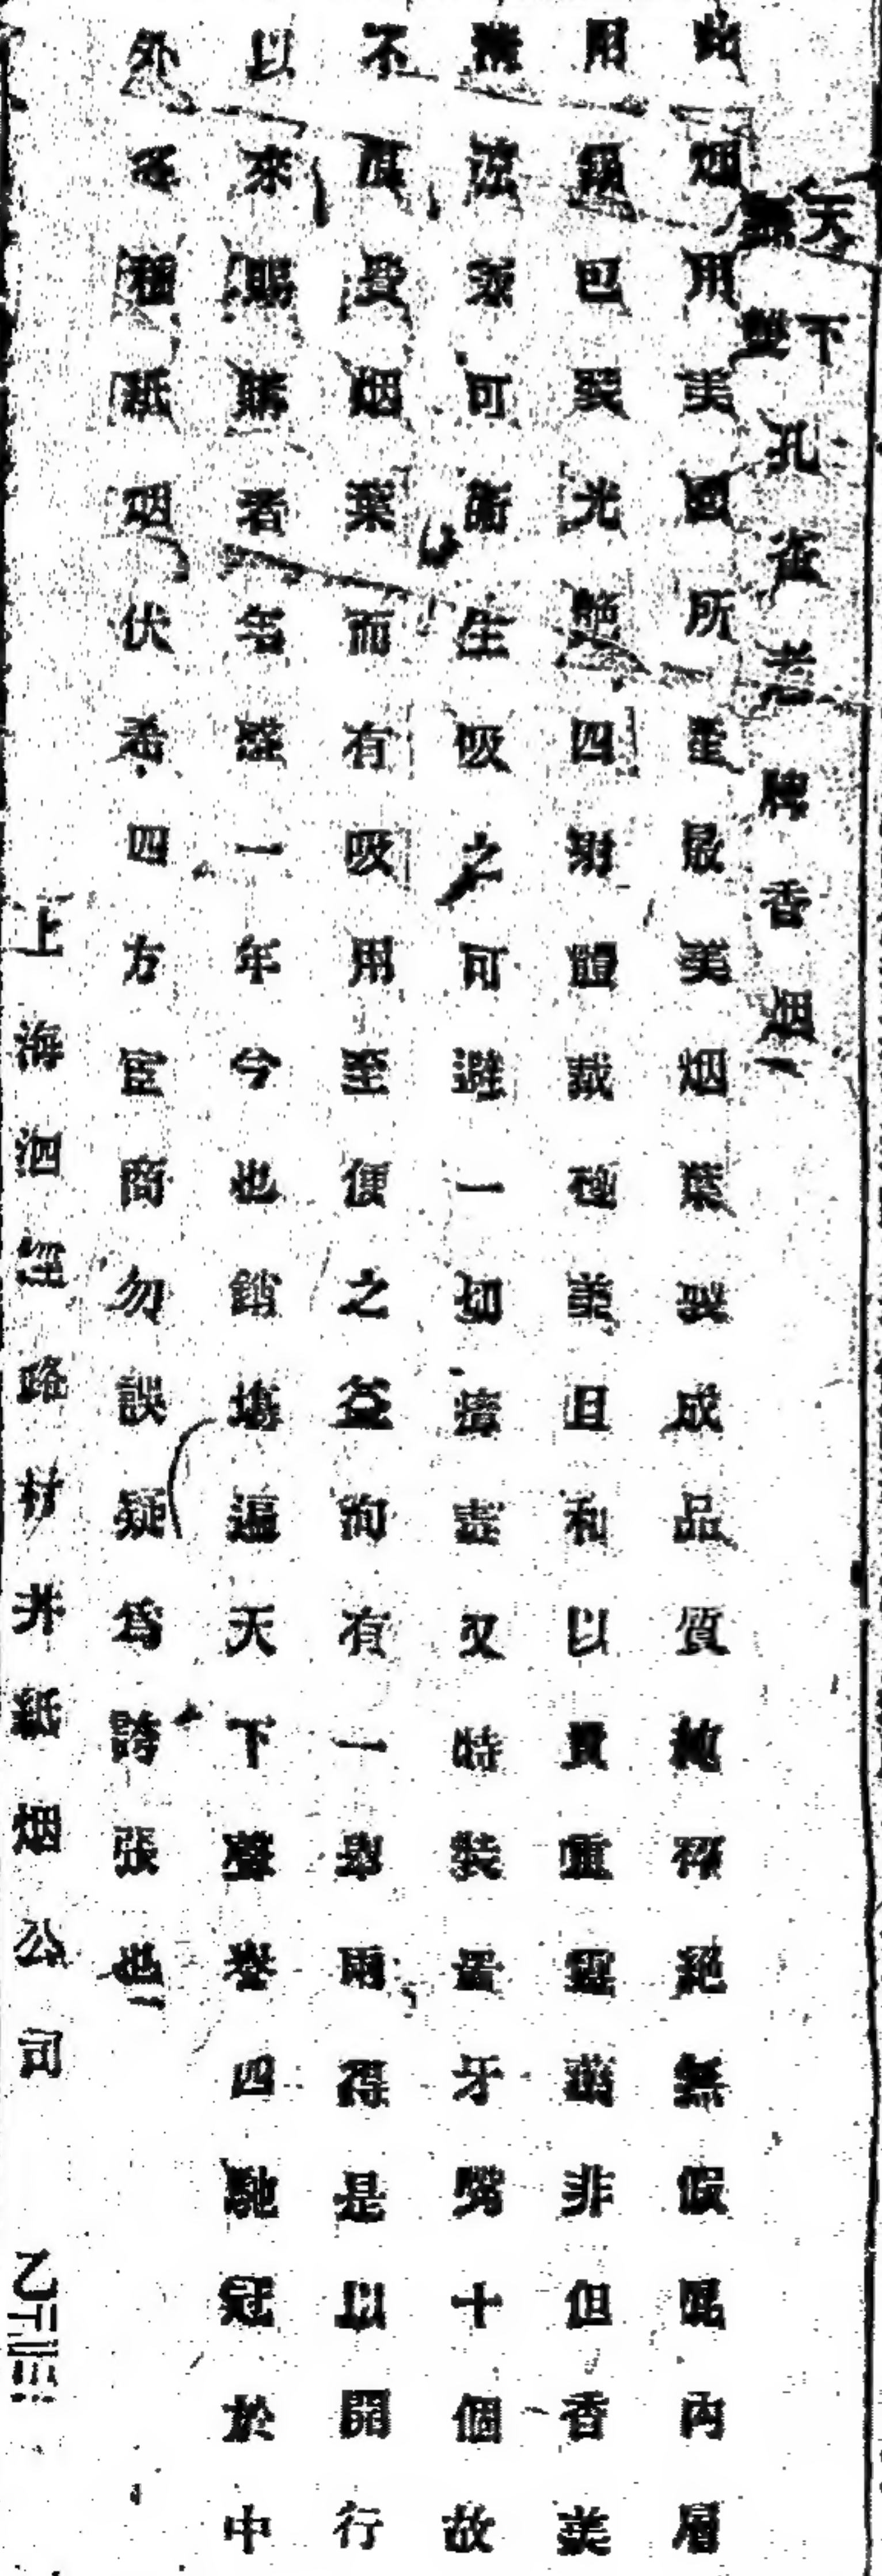 天下無雙孔雀老牌香烟
此烟用美國所產最美烟葉製成品質純粹絕無假冒內層
用錫包裝光艷四射體裁極美且和以貴重靈藥非但香美
清涼亦可衛生吸之可避一切瘴毒又特裝蛋牙嘴十個故
不但受烟葉而有吸用至便之益洵有一舉兩得是以開行
以來賜購者年盛一年今也銷塲遍天下聲譽四馳冠於中
外各種紙烟伏希四方宦商勿誤疑爲誇張也
上海泗涇路村井紙烟公司
乙